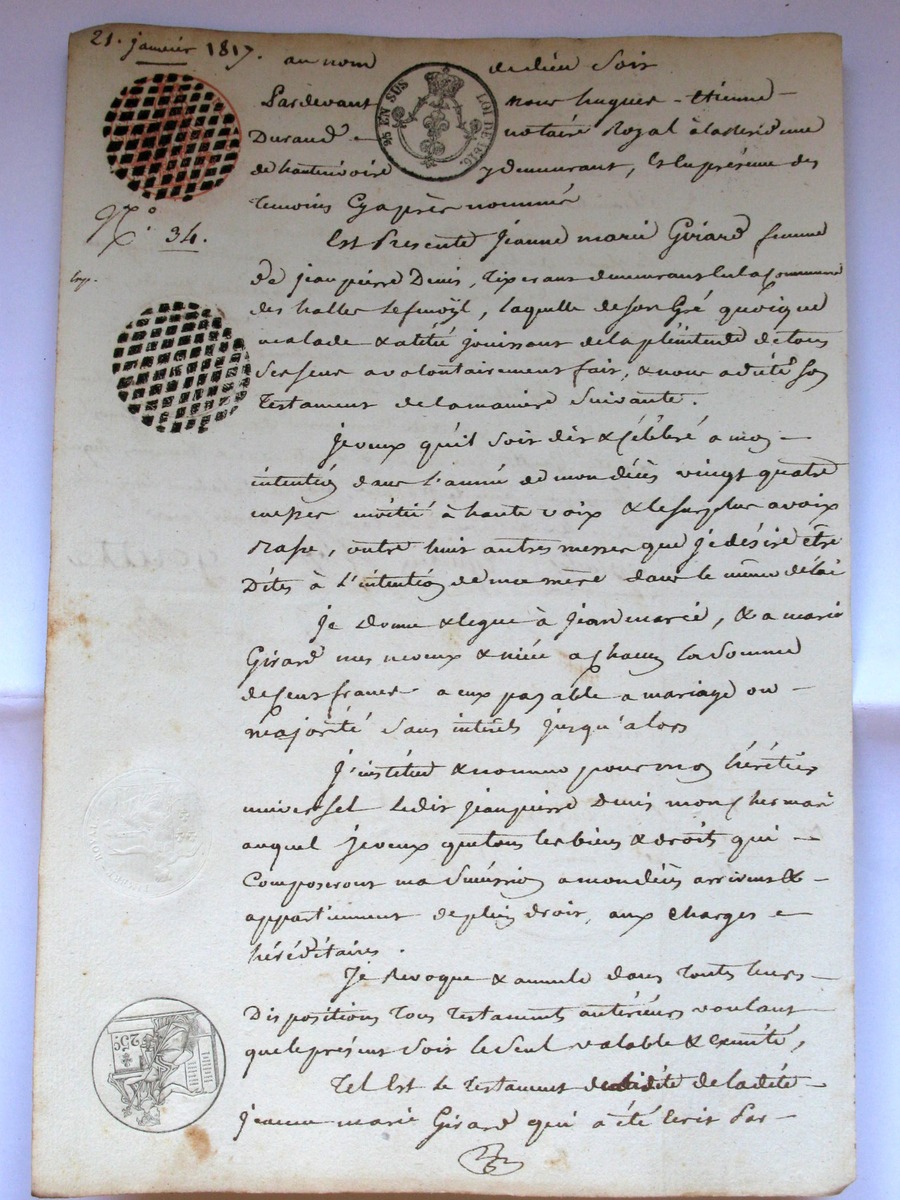 21. janvier 1817.
au nom de dieu soit
Pardevant nous hugues-Etienne-
Durand notaire Royal à la residence
de hauterivoire y demeurant, Et en présence des
Temoins Cyaprès nommés
N.° 34.
Est Presente Jeanne marie Girard femme
de jean pierre Denis, Tixerant demeurant en la Commune
des halles Lefenoÿl, laquelle de son Gré quoique
malade & alitée jouissant de la pléinitude de tous
Ses sens a volontairement fait, & nous a dicté son
Testament de la maniere Suivante.
Je veux qu'il soit dit & Célébré a mon
intention dans l'année de mon décès vingt quatre
messes moitié à haute voix & le surplus a voix
Basse, outre huit autres messes que je désire être
Dites à l'intention de ma mère dans le même délai
Je donne & legue à jean marie, & a marie
Girard mes neveux & niéce a Chacun la Somme
de Cent francs a eux payable a mariage ou
majorité sans intérêts jusqu'alors
J'institue & nomme pour mon héritier
universel ledit jean pierre Denis mon Cher mari
auquel je veux que tous les biens & droits qui
Composeront ma Succession a mon décès arrivent &
appartiennent de plein droit, aux Charges
héréditaires.
Je Revoque & annulle dans Toutes leurs
Dispositions Tous Testaments antérieurs voulant
que le présent soit le Seul valable & exécuté,
Tel Est le Testament de la dite
jeanne marie Girard qui a été Ecrit Par
EN SUS LOI DE 1816.
25 c